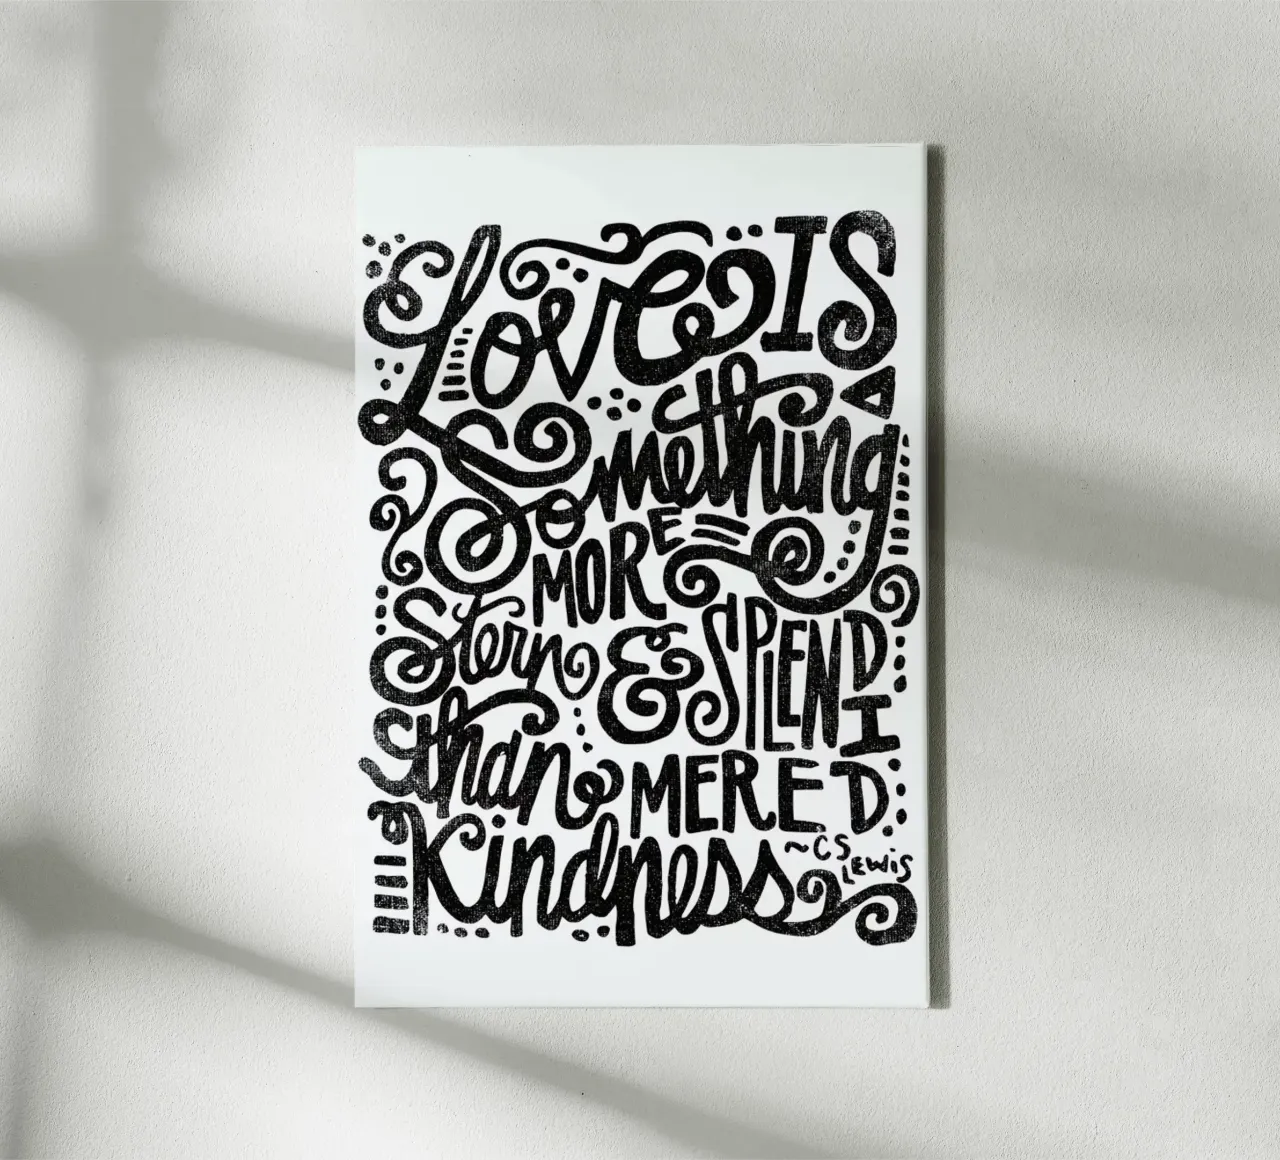 Love IS
Something
MORE
Stern & SPLENDID
than MERE
Kindness
~CS
LEWIS